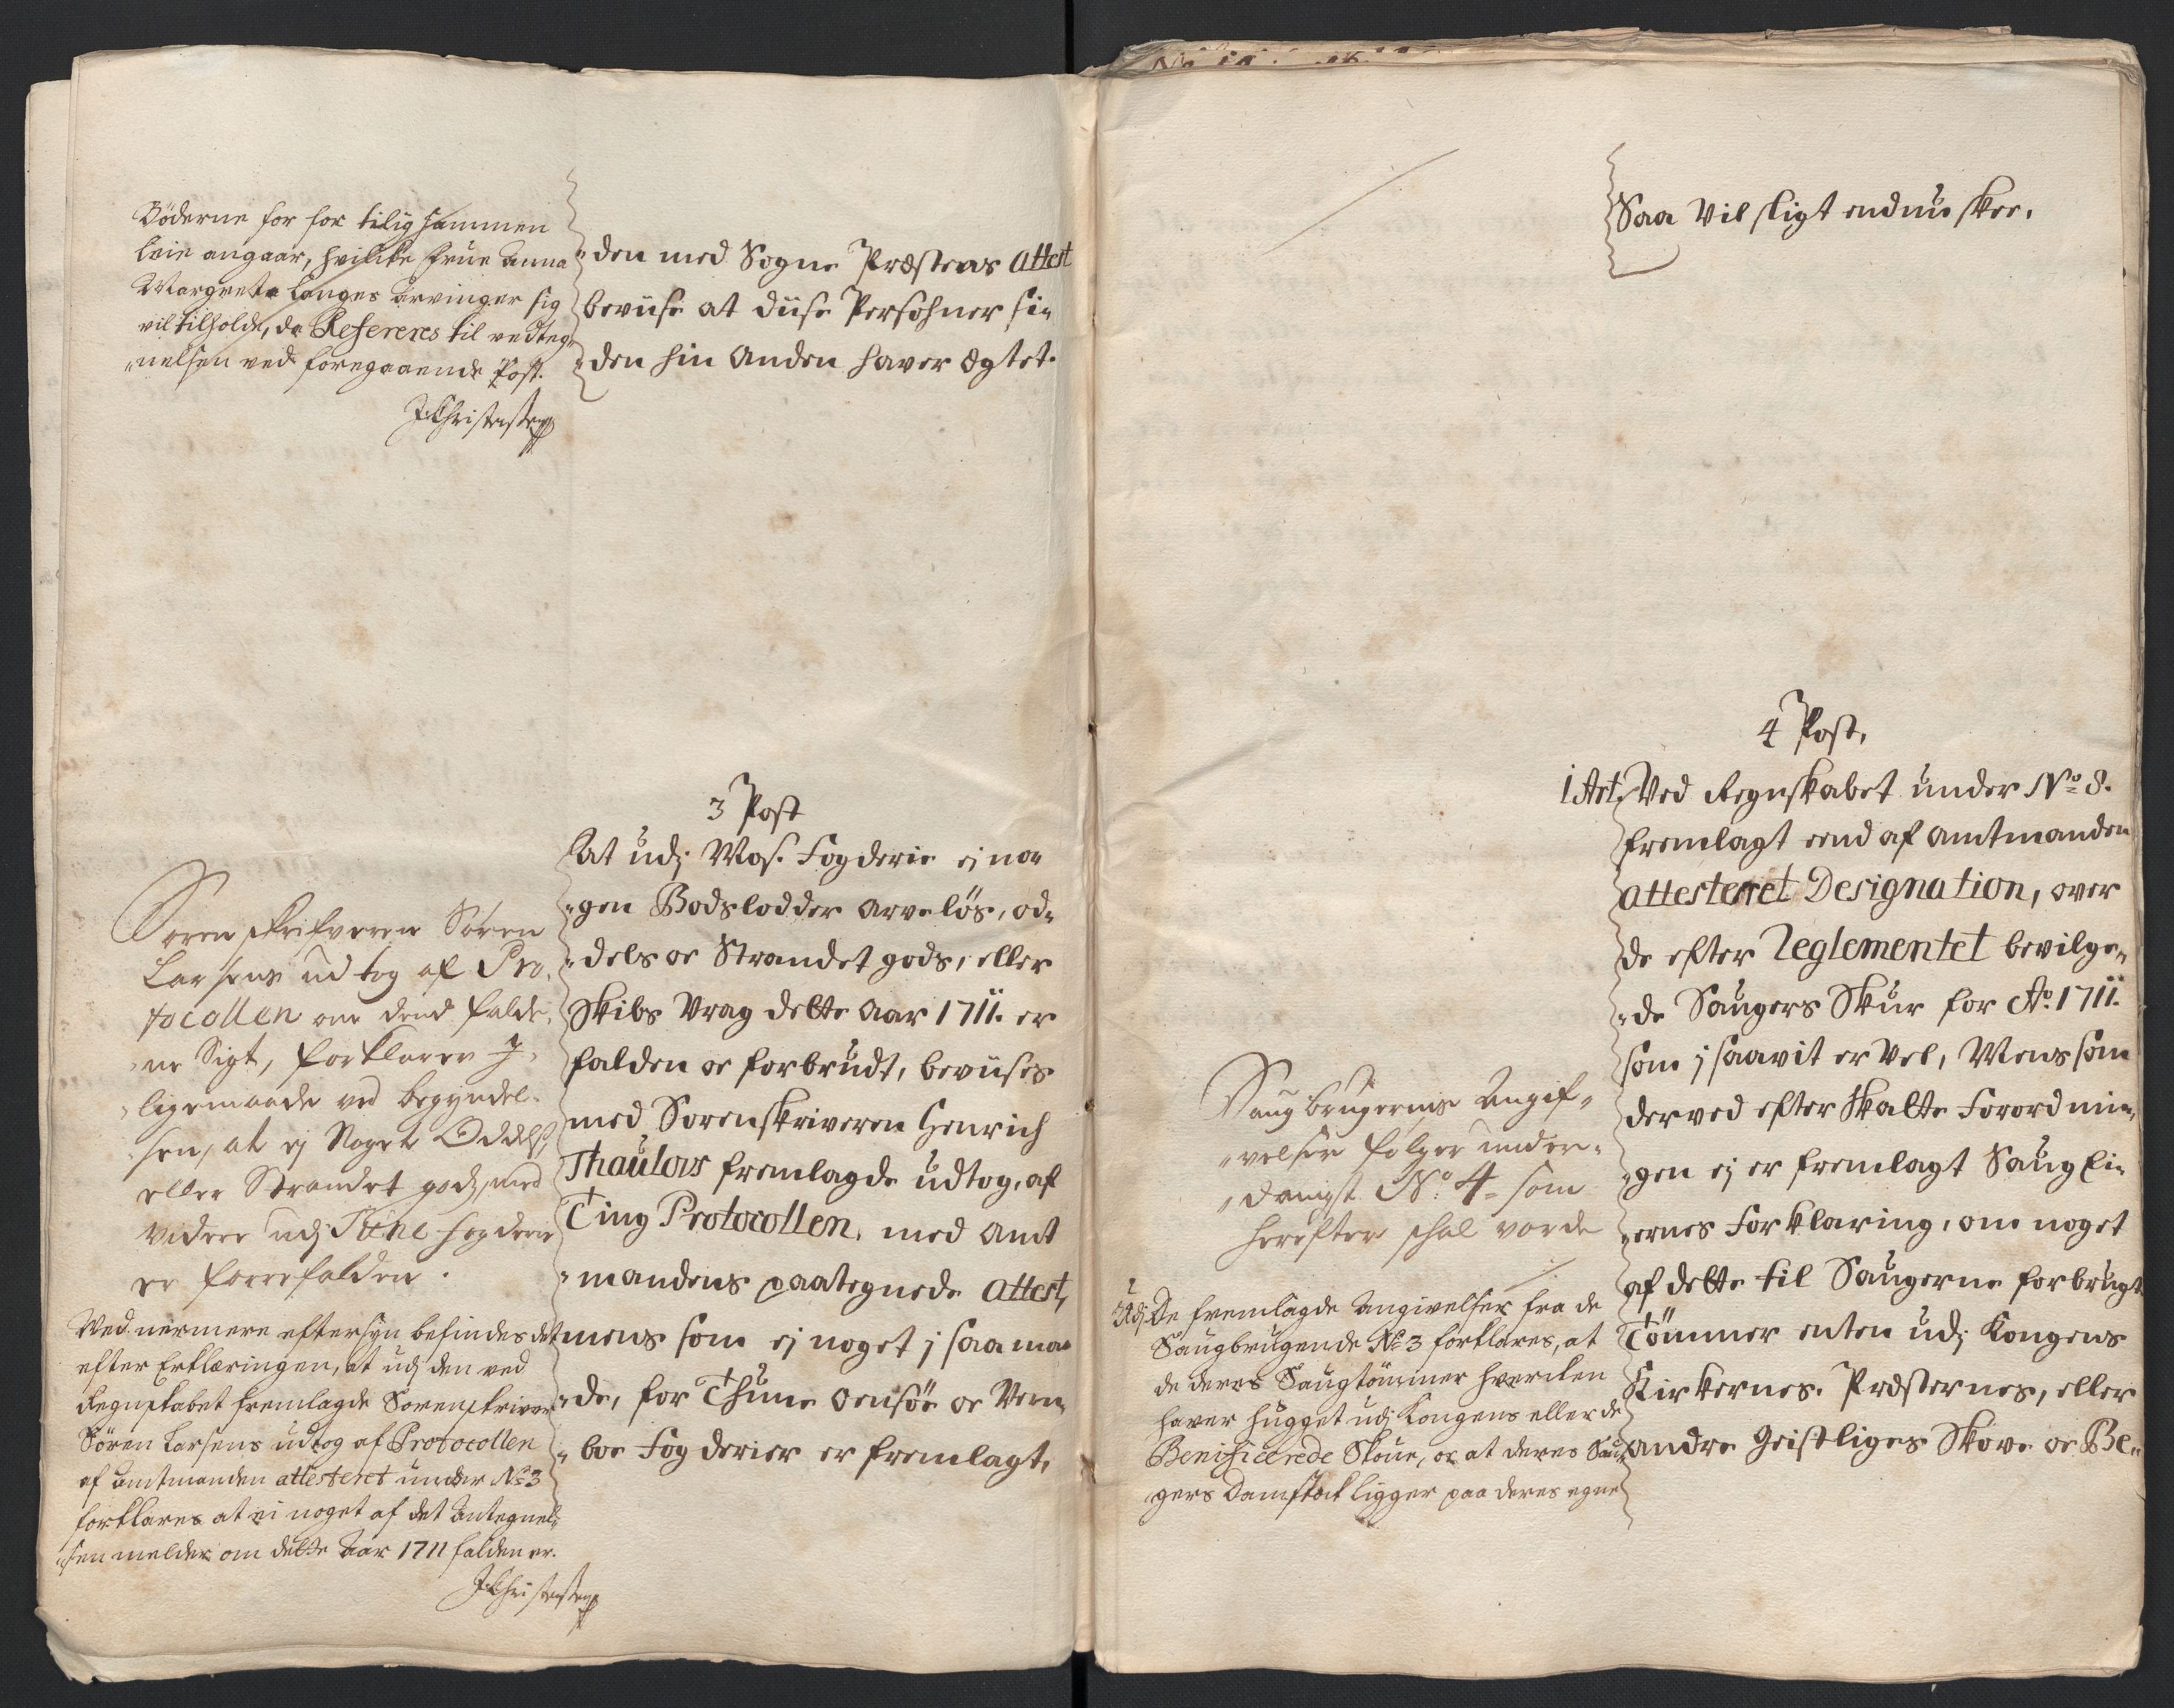 Böderne for for tilig sammen
leie angaar, hvilcke Frue Anna
Margreta Langes Arvinger sig
vil tilholde, da Refereres til vedteg-
nelsen ved foregaaende Post.
JChristensen
den med Sogne Præstens Attest
beviise at diise Persohner si-
den hin Anden haver Ægtet.
3 Post
At udj Mos. Fogderie ej no-
gen Bodslodder Arveløs, od-
dels oc Strandet gods, eller
Skibs Vrag dette Aar 1711. er
falden oc forbrudt, beviises
med Sorenskriveren Henrich
Thaulows fremlagde udtog, af
Ting Protocollen, med Amt
mandens paategnede Attest,
mens som ej noget j saa ma-
de, for Thune Oensöe oc Vem-
boe Fogderier er fremlagt,
Sorenskrifveren Sören
Larsens udtog af Pro-
tocollen om dend falde-
ne Sigt, forklarer J-
ligemaade ved begyndel-
sen, at ej Noget Oddelss
eller Strandet gods, med
videre udj Tune fogderie
er forrefalden.
Ved nermere eftersyn befindes det
efter Erklæringen, at udj den ved
Regnskabet fremlagde Sorenskriver
Sören Larsens udtog af Protocollen
af Amtmanden attesteret under No 3
forklares at ei noget af det Antegnel-
sen melder om dette Aar 1711 falden er.
JChristensen
Saa Vil sligt endnu skee.
4 Post,
1 Art. Ved Regnskabet under No 8.
fremlagt eend af Amtmanden
attesteret Designation, over
de efter Reglementet bevilge-
de Saugers Skur for Ao. 1711.
som j saavit er Vel, Mens som
derved efter Skatte Forordnin-
gen ej er fremlagt Saug Ei-
ernes Forklaring, om noget
af dette til Saugerne forbrugt
Tömmer enten udj Kongens
Kirkernes. Præsternes, eller
andre Geistliges Skove oc Be-
Saugbrugernis Angif-
velser følger under-
danigst No. 4 som
herefter schal vorde
De fremlagde Angivelser fra de
Saugbrugende No 3 forklares, at
de deres Saugtömmer hvercken
haver hugget udj Kongens eller de
Benificerede Skoue, oc at deres Sau-
gers Damstock ligger paa deres egne